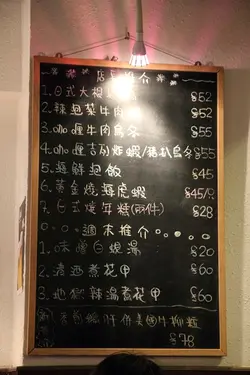 店長推介
1.日式大根 $52
2.辣泡菜牛肉 $52
3.咖喱牛肉烏冬 $55
4.咖喱吉列炸蝦/豬扒烏冬 $55
5.鮮泡飯 $45
6.黃金燒蝦 $45/
7.日式燒年糕(兩件) $28
週末推介
1.味噌白蜆湯 $20
2.清酒煮花甲 $60
3.地獄辣湯煮花甲 $60
$78